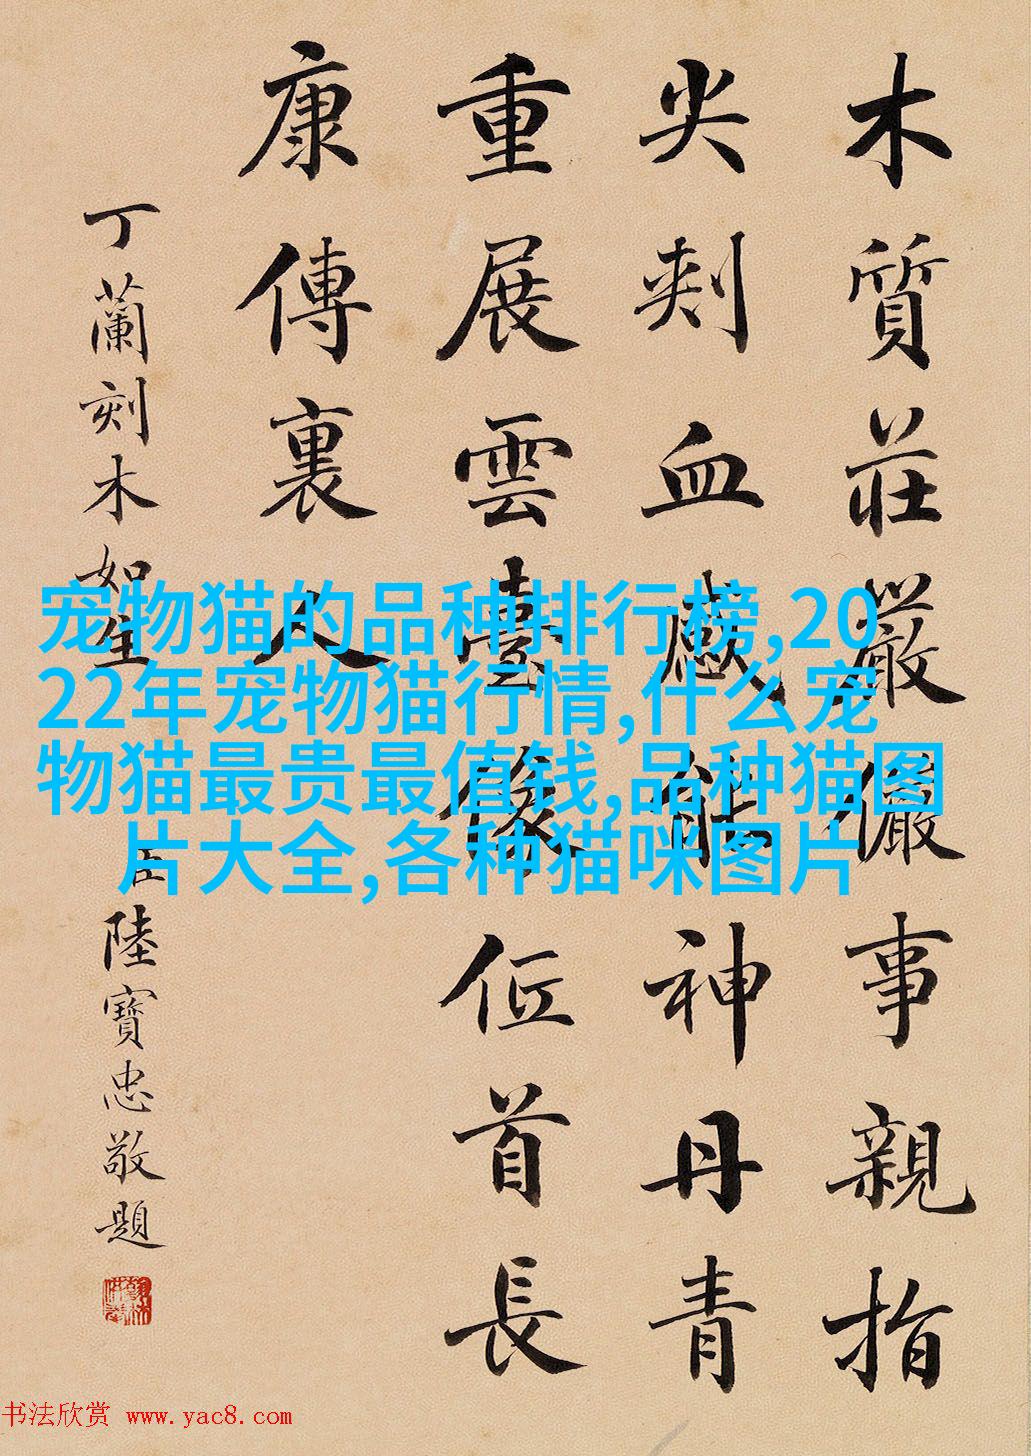 木質莊嚴儼事親指
尖刾血感能神丹青
重展雲臺像位首長
康傳裏人
丁蘭刻木如生
臣陸寶忠敬題
宠物猫的品种排行榜,20
22年宠物猫行情,什么宠
物猫最贵最值钱,品种猫图
片大全,各种猫咪图片
书法欣赏 www.yac8.com